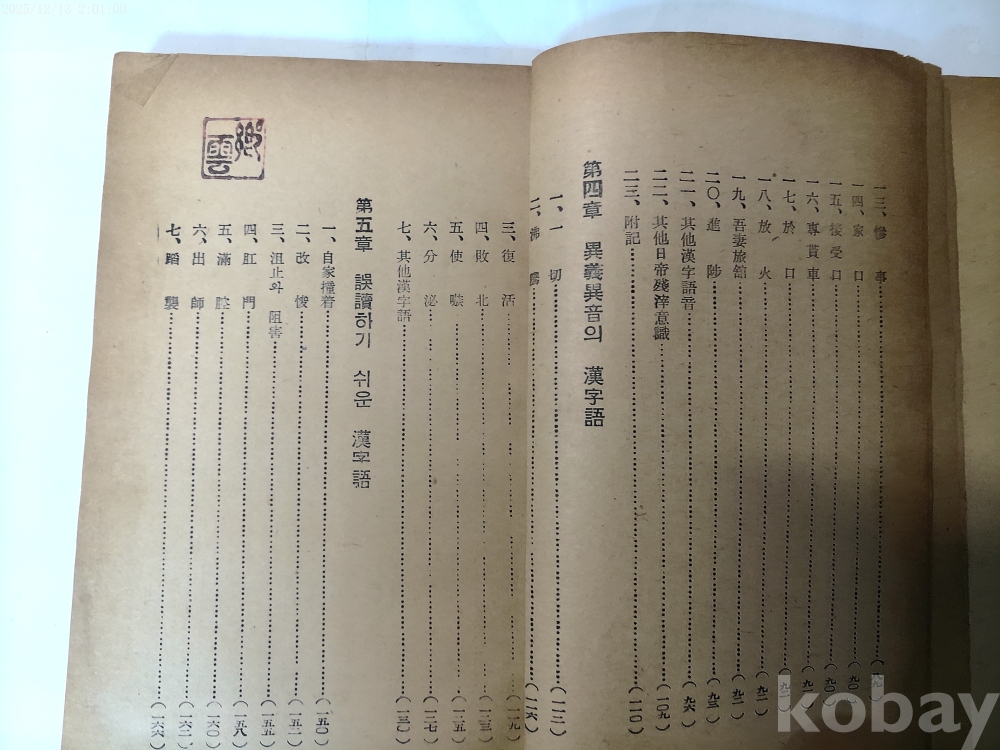 2025/12/13 2:01:00
一三、慘事……(八九)
一四、家口……(九〇)
一五、接受口……(九〇)
一六、專貰車……(九一)
一七、於口……(九一)
一八、放火……(九一)
一九、吾妻旅館……(九二)
二〇、進陟……(九三)
二一、其他漢字語音……(九六)
二二、其他日帝殘滓意識……(一〇九)
二三、附記……(一一〇)
第四章 異義異音의 漢字語
一、一切……(一一二)
二、沸騰……(一一六)
三、復活……(一一九)
四、敗北……(一二三)
五、使嗾……(一二五)
六、分泌……(一二七)
七、其他漢字語……(一三〇)
第五章 誤讀하기 쉬운 漢字語
一、自家撞着……(一五〇)
二、改悛……(一五二)
三、沮止와 阻害……(一五五)
四、肛門……(一五八)
五、滿腔……(一六〇)
六、出師……(一六二)
七、蹈襲……(一六六)
鄕雲
kobay